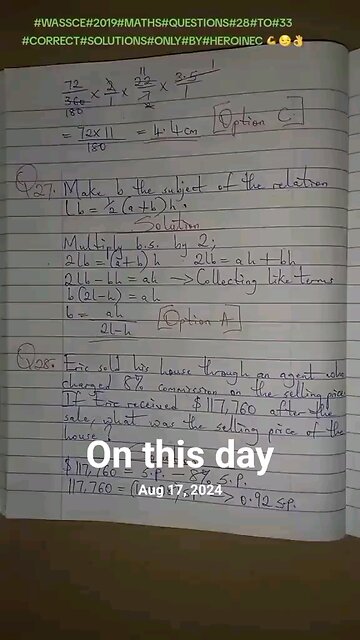 #WASSCE#2019#MATHS#QUESTIONS#28#TO#33
#CORRECT#SOLUTIONS#ONLY#BY#HEROINEC 💪😏👌
72/360 × 2/1 × 22/7 × 3.5/1
180 11 2 1
= 72×11/180 = 4.4cm [Option C]
Q27. Make b the subject of the relation
lb = ½ (a+b)h.
Solution
Multiply b.s. by 2;
2lb = (a+b)h 2lb = ah + bh
2lb - bh = ah → Collecting like terms
b(2l-h) = ah
b = ah/2l-h [Option A]
Q28. Eric sold his house through an agent who
charged 8% commission on the selling price
If Eric received $117,760 after the
sale, what was the selling price of the
house?
On this day
$117,760 = S.P. - 8% S.P.
Aug 17, 2024
117,760 = 0.92 S.P.